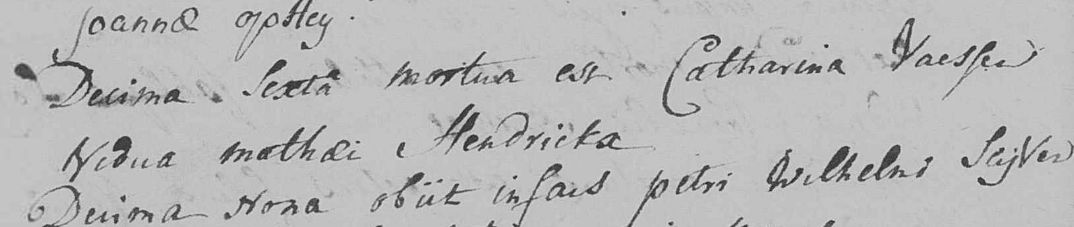 Joannæ opHey.
Decima Sexta mortua est Catharina Vaessen
Vidua mathæi Hendrickx
Decima Nona obiit infans petri Wilhelmi